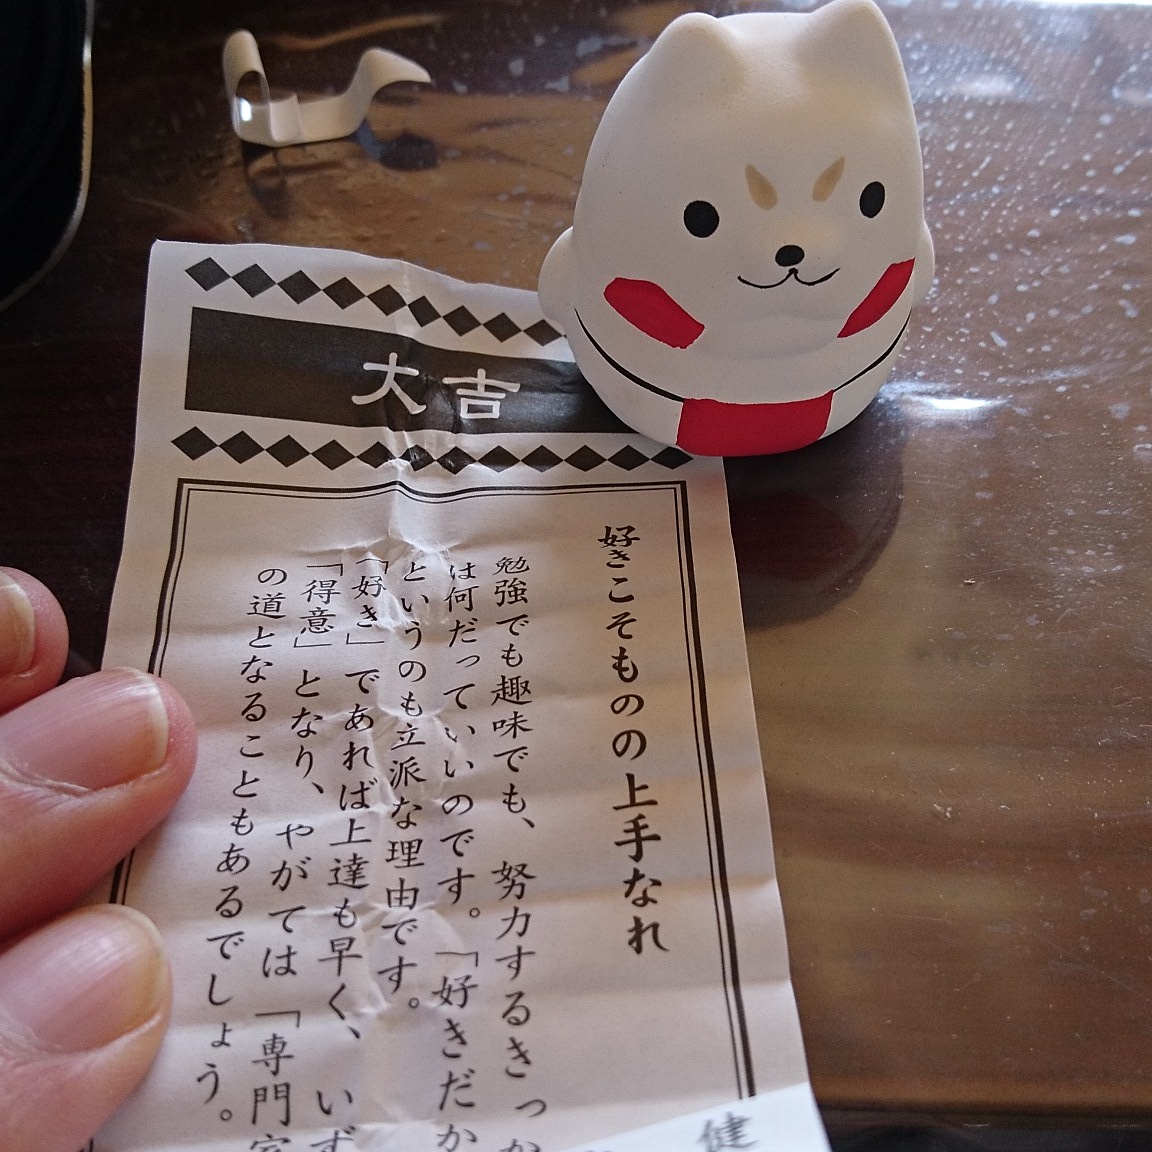 大吉
好きこそものの上手なれ
勉強でも趣味でも、努力するきっか
は何だっていいのです。「好きだか
というのも立派な理由です。
「好き」であれば上達も早く、いず
「得意」となり、やがては「専門家
の道となることもあるでしょう。
健